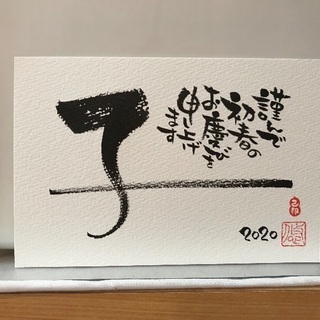 謹んで
初春の
お慶びを
申し上げ
ます
子
2020